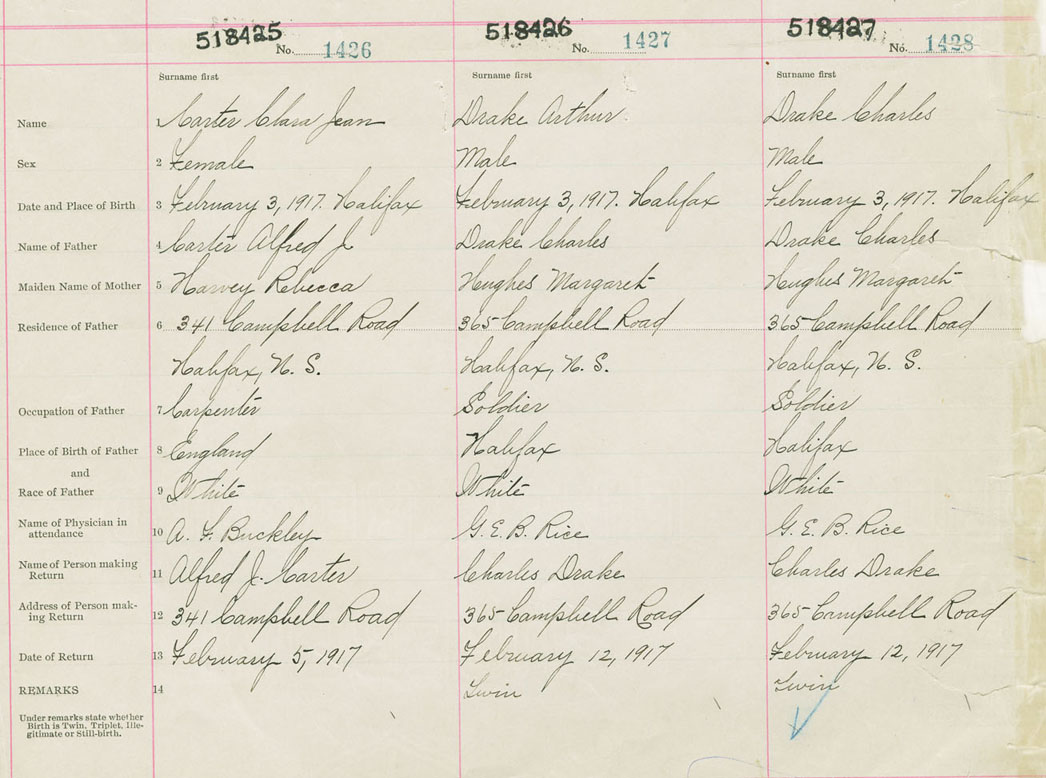 518425 518426 518427
No. 1426 No. 1427 No. 1428
Surname first Surname first Surname first
Name 1 Carter Clara Jean Drake Arthur Drake Charles
Sex 2 Female Male Male
Date and Place of Birth 3 February 3, 1917. Halifax February 3, 1917. Halifax February 3, 1917. Halifax
Name of Father 4 Carter Alfred J Drake Charles Drake Charles
Maiden Name of Mother 5 Harvey Rebecca Hughes Margaret Hughes Margaret
Residence of Father 6 341 Campbell Road 365 Campbell Road 365 Campbell Road
Halifax, N. S. Halifax, N. S. Halifax, N. S.
Occupation of Father 7 Carpenter Soldier Soldier
Place of Birth of Father 8 England Halifax Halifax
and
Race of Father 9 White White White
Name of Physician in
attendance 10 A. F. Buckley G. E. B. Rice G. E. B. Rice
Name of Person making
Return 11 Alfred J. Carter Charles Drake Charles Drake
Address of Person mak-
ing Return 12 341 Campbell Road 365 Campbell Road 365 Campbell Road
Date of Return 13 February 5, 1917 February 12, 1917 February 12, 1917
REMARKS 14 Twin Twin
Under remarks state whether
Birth is Twin, Triplet, Ille-
gitimate or Still-birth.